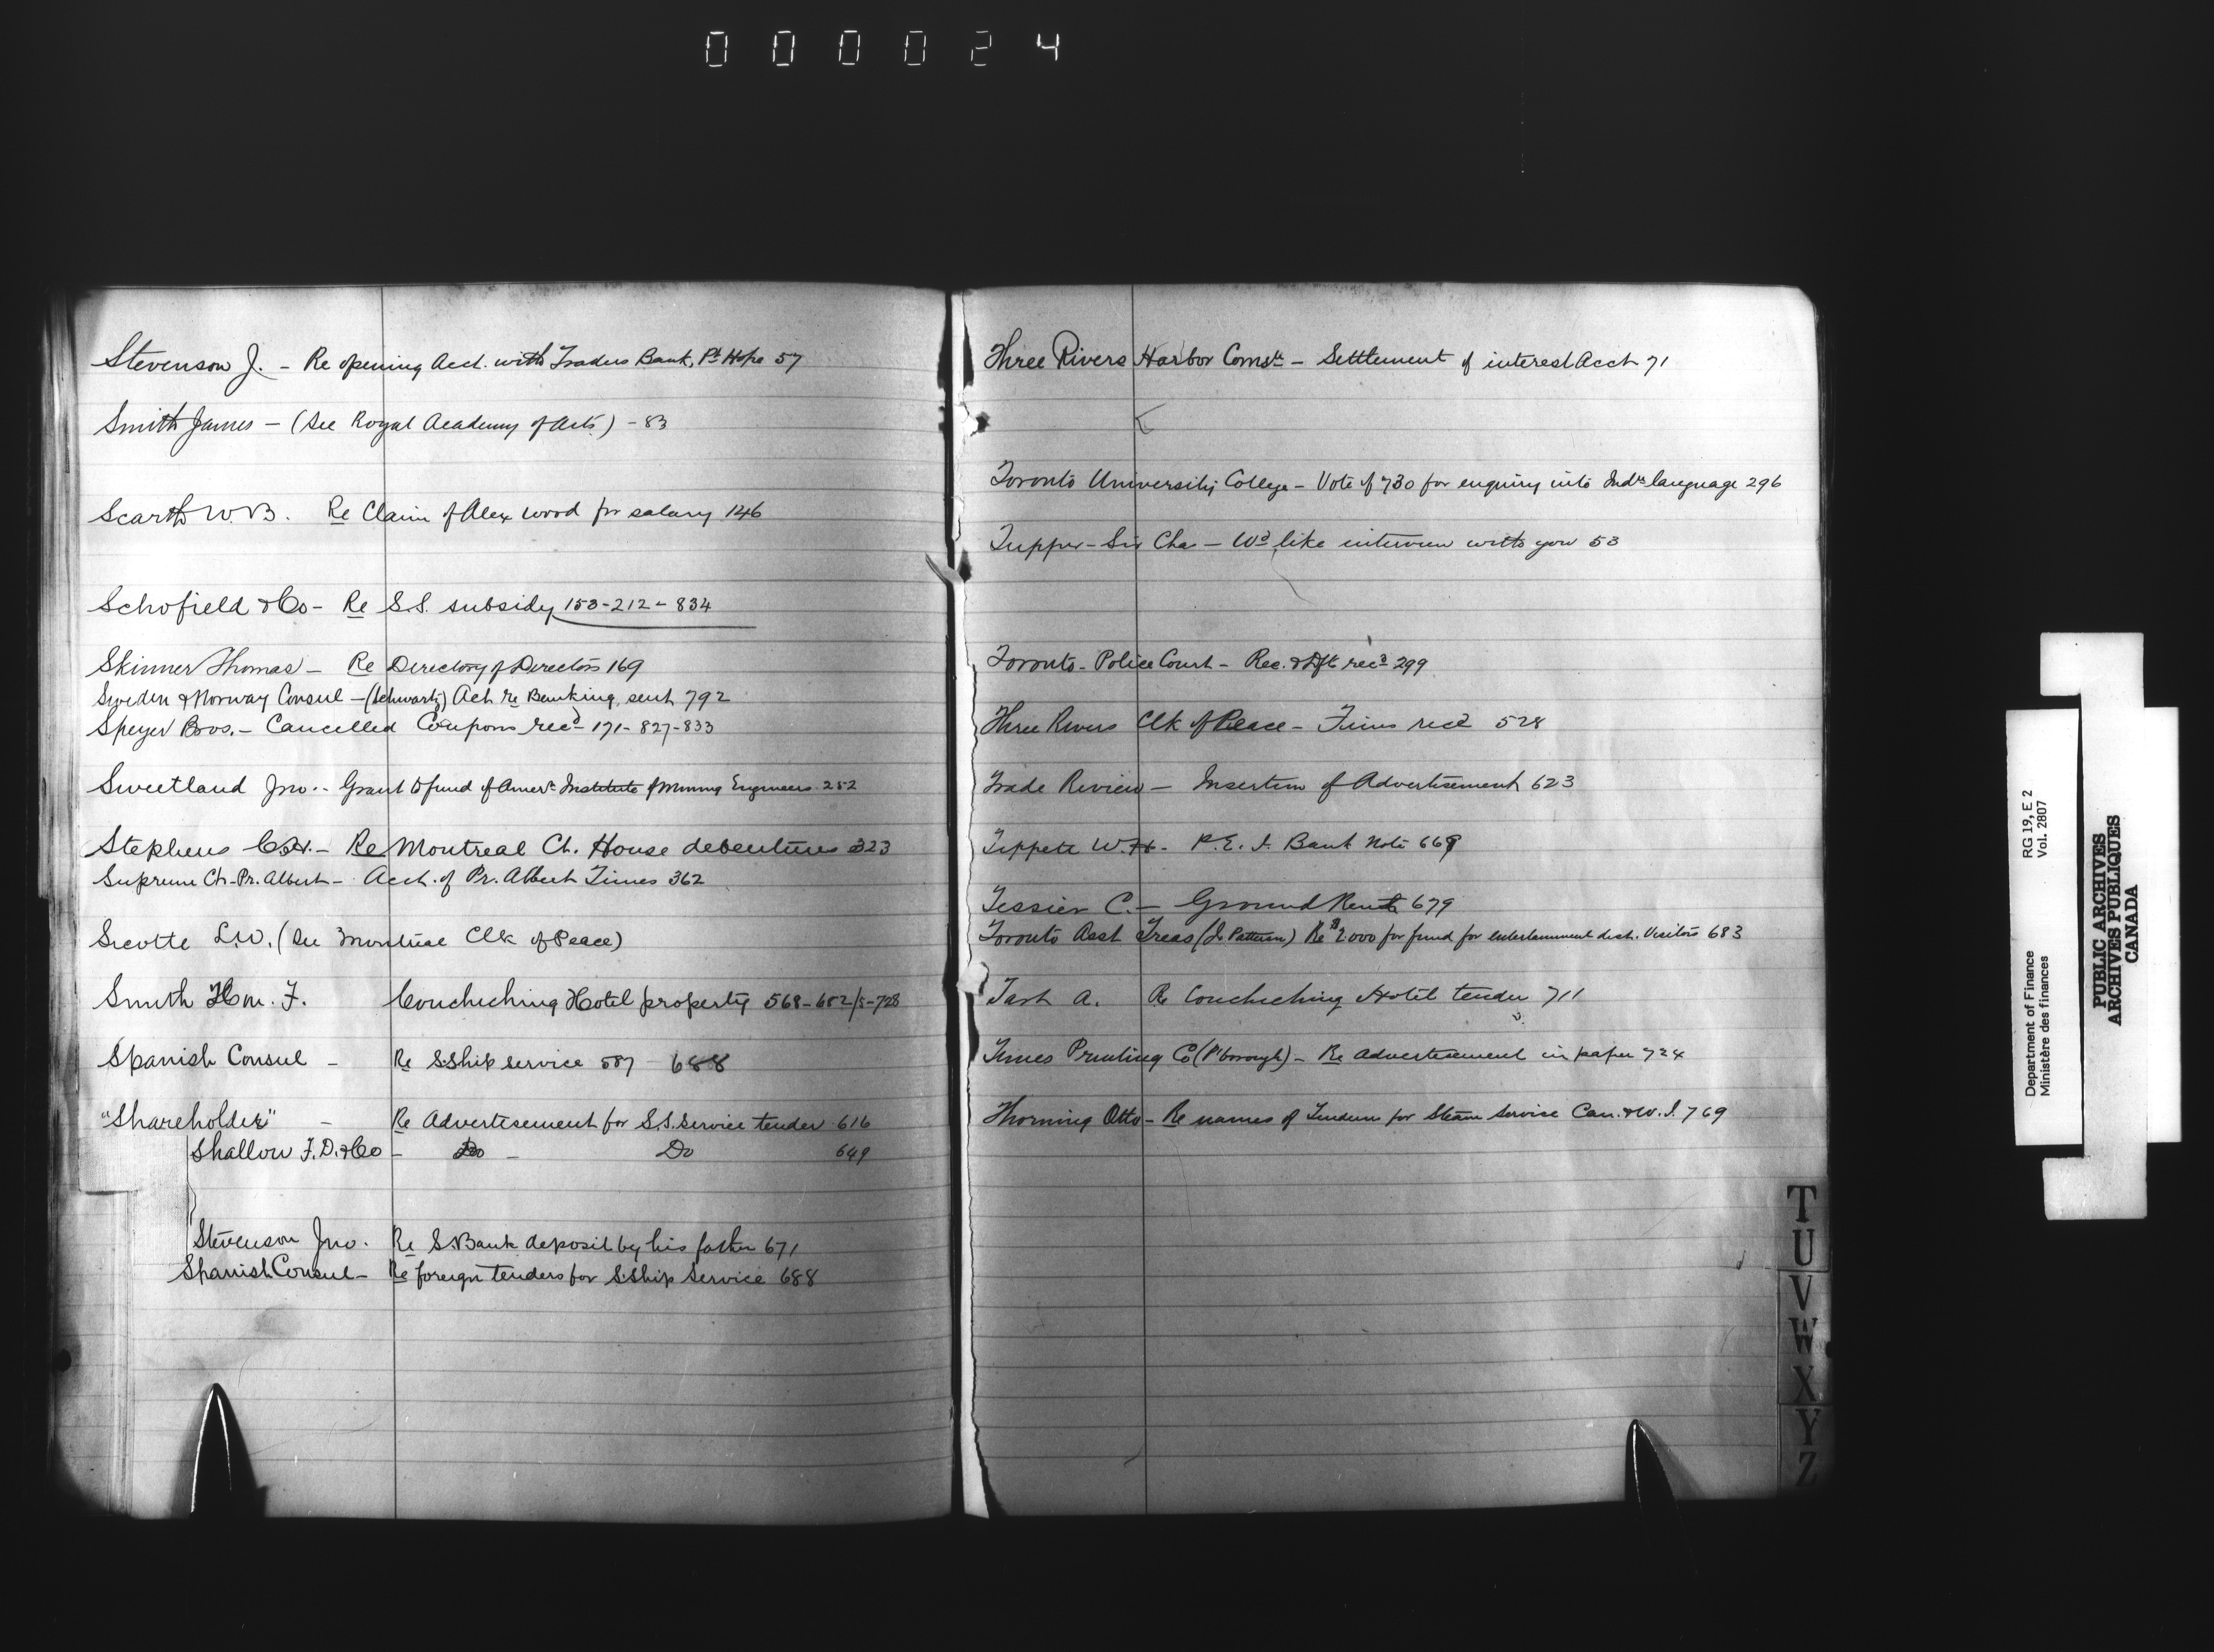 000024
Stevenson J. - Re opening Acct. with Traders Bank, Pt Hope 57
Smith James - (See Royal Academy of Arts) - 83
Scarth W.B. Re Claim of Alex Wood for salary 146
Schofield & Co - Re S.S. subsidy 153-212-834
Skinner Thomas - Re Directory of Directors 169
Sweden & Norway Consul - (Schwartz) Act re Banking, sent 792
Speyer Bros. - Cancelled Coupons recd 171-827-833
Sweetland Jno. - Grant to fund of Amern Institute of Mining Engineers 252
Stephens - Re Montreal Ct. House debentures 323
Supreme Ct. Pr. Albert - Acct. of Pr. Albert Times 362
Sicotte L.W. (See Montreal Clk of Peace)
Smith F. Couchiching Hotel property 568-682/5-728
Spanish Consul - Re S.Ship service 587 - 688
"Shareholder" - Re Advertisement for S.S. service tender 616
Shallow F.D. & Co - Do - Do 649
Stevenson Jno. Re S. Bank deposit by his father 671
Spanish Consul - Re foreign tenders for S.Ship Service 688
Three Rivers Harbor - Settlement of interest Acct 71
Toronto University College - Vote of 730 for enquiry into Indn language 296
Tupper - Sir Chas - Wd like interview with you 53
Toronto - Police Court - Rec. & Dft recd 299
Three Rivers Clk of Peace - Fines recd 528
Trade Review - Insertion of Advertisement 623
Tippett W.H. - P.E.I. Bank Note 669
Tessier C. - Ground Rent 679
Toronto Asst Treas (J. Patterson) Re $2.000 for fund for entertainment dist. Visitors 683
A. Re Couchiching Hotel tender 711
Times Printing Co (P'borough) - Re advertisement in paper 724
Thorning Otto - Re names of Tenders for Steam Service Can. & W.I. 769
T
U
V
W
X
Y
Z
Department of Finance
Ministère des finances
RG 19, E 2
Vol. 2807
PUBLIC ARCHIVES
ARCHIVES PUBLIQUES
CANADA